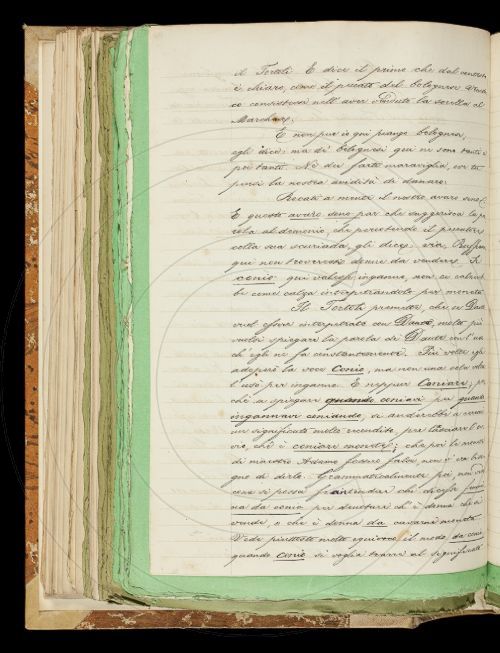 il Torelli E dice il primo che dal contesto
è chiaro, come il peccato del bolognese Vened
co consistesse nell' aver venduta la sorella al
Marchese;
E non pur io qui piango bolognese,
egli dice; ma di bolognesi qui ne son tanti e
poi tanti. Nè dee farti maraviglia, se tu
pensi la nostra avidità di danaro.
Recati a mente il nostro avaro seno.
E questo avaro seno par che suggerisca la pa
rola al demonio, che percotendo il peccatore
colla sua scuriada, gli dice: via, Ruffian
qui non troveresti donne da vendere. Se
conio qui valesse inganno, non
come calza interpretandolo per moneta
Il Torelli premette, che se Dante
vuol esser interpretato con Dante, molto più
vuolsi spiegare la parola di Dante con l' uso
ch' egli ne fa constantemente. Più volte egli
adoperò la voce Conio, ma non una sola volta
l' usò per inganno. E neppur Coniare; per
chè a spiegare quando coniavi per quando
ingannavi coniando, si andrebbe a
un significato molto recondito, per lasciare l' ov
vio, ch' è coniare monete; che poi le monete
di maestro Adamo fosser false, non v' era biso
gno di dirlo. Grammaticalmente poi, non
come si possa che dicasi femmi
na da conio per denotare ch' è donna che si
vende, o che è donna da cavarne moneta
Vede piuttosto molto equivoco il modo da conio
quando Conio si voglia trarre al significato